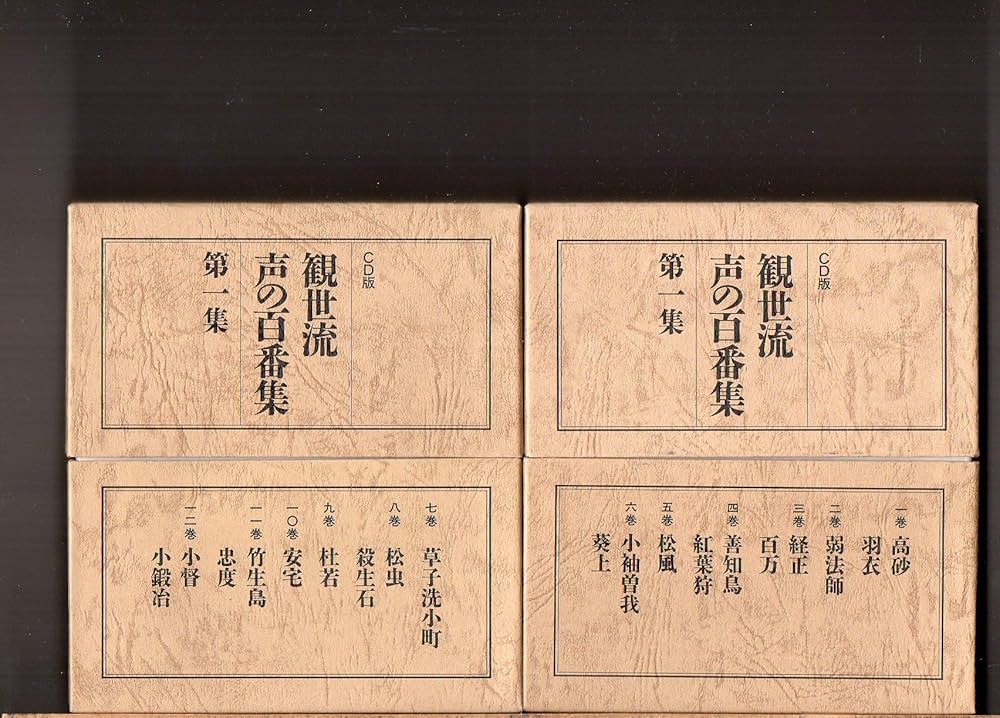 CD版
観世流
声の百番集
第一集
CD版
観世流
声の百番集
第一集
一巻 高砂
羽衣
二巻 弱法師
三巻 経正
百万
四巻 善知鳥
紅葉狩
五巻 松風
六巻 小袖曽我
葵上
七巻 草子洗小町
八巻 松虫
殺生石
九巻 杜若
一〇巻 安宅
一一巻 竹生島
忠度
一二巻 小督
小鍛冶